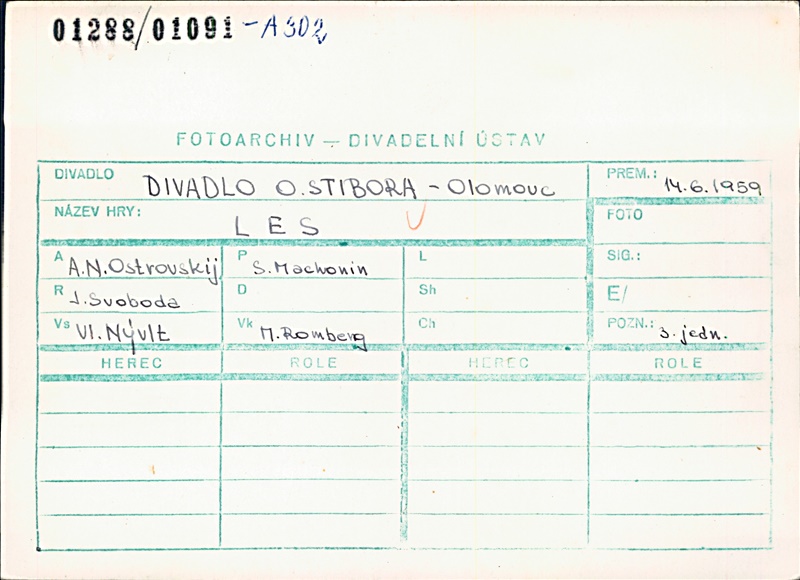 01288/01091 -A302
FOTOARCHIV — DIVADELNÍ ÚSTAV
DIVADLO DIVADLO O.STIBORA - Olomouc PREM.: 14.6.1959
NÁZEV HRY: LES FOTO
A A.N.Ostrovskij P S.Machonin L SIG.:
R J.Svoboda D Sh E/
Vs Vl.Nývlt Vk M.Romberg Ch POZN.: 3.jedn.
HEREC ROLE HEREC ROLE